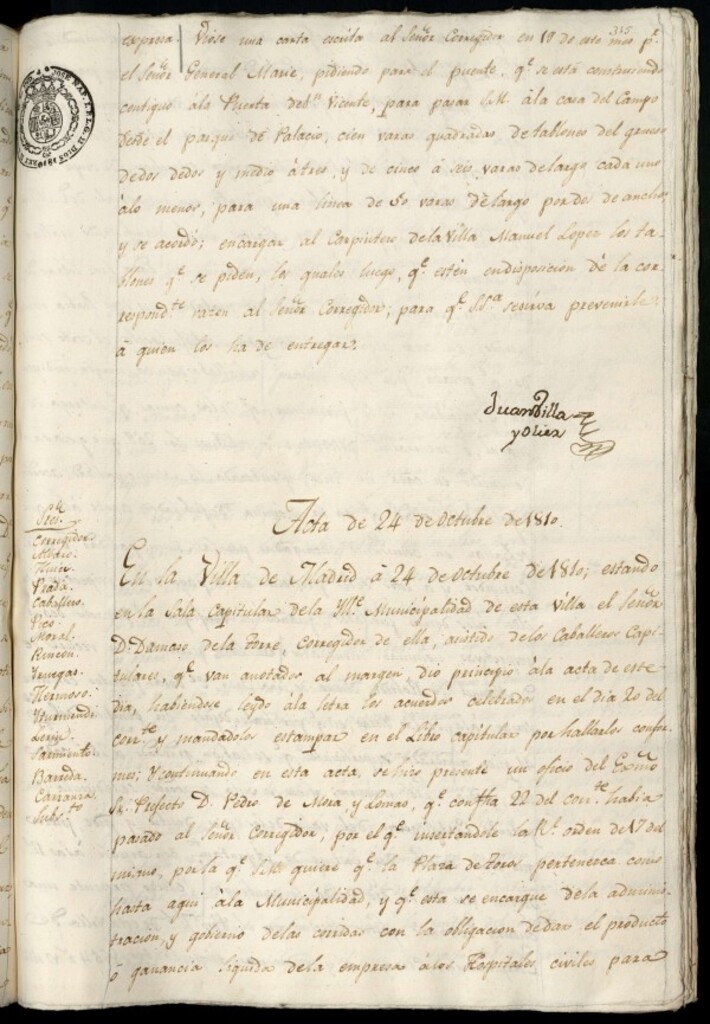 315
espresa. Viose una carta escrita al Señor Corregidor en 19 de este mes pr.
el Señor General Marie, pidiendo para el puente, qe. se está construiendo
contiguo àla Puerta de Sn. Vicente, para pasar S.M. àla casa del Campo
desde el parque de Palacio, cien varas quadradas de tablones del grueso
dedos dedos y medio àtres, y de cinco à seis varas delargo cada uno
alo menos, para una linea de 50 varas delargo por dos de ancho;
y se acordó; encargar al Carpintero dela Villa Manuel Lopez los ta-
blones qe. se piden, los quales luego, qe. estén endisposicion dè la cor-
respondte. razon al Señor Corregidor; para qe. S.Sa. sesirva prevenirle
à quien los ha de entregar.
Juan Villa
y Olier
Acta de 24 de Octubre de 1810.
Sres.
Corregidor.
Prada.
Caballero.
Moral.
Rincon.
Hermoso.
Yturmendi
Sarmiento.
Barreda.
Carranza.
En la Villa de Madrid à 24 de Octubre de 1810; estando
en la Sala Capitular dela Ille. Municipalidad de esta villa el Señor
D. Damaso dela Torre, Corregidor de ella, asistido delos Caballeros Capi-
tulares, qe. van anotados al margen, dio principio àla acta de este
dia, habiendose leydo àla letra los acuerdos celebrados en el dia 20 del
corrte. y mandadolos estampar en el Libro capitular por hallarlos confor-
mes; Y continuando en esta acta, se hizo presente un oficio del Exmo
Sr. Prefecto D. Pedro de Mora, y Lomas, qe. con fha 22 del corrte. habia
pasado al Señor Corregidor; por el qe. insertandole la Rl. orden de 17 del
mismo, por la qe. S.M. quiere qe. la Plaza de Toros pertenezca como
hasta aqui àla Municipalidad, y qe. esta se encargue dela adminis-
tracion, y gobierno delas corridas con la obligacion dedar el producto
ò ganancia liquida dela empresa àlos Hospitales civiles para